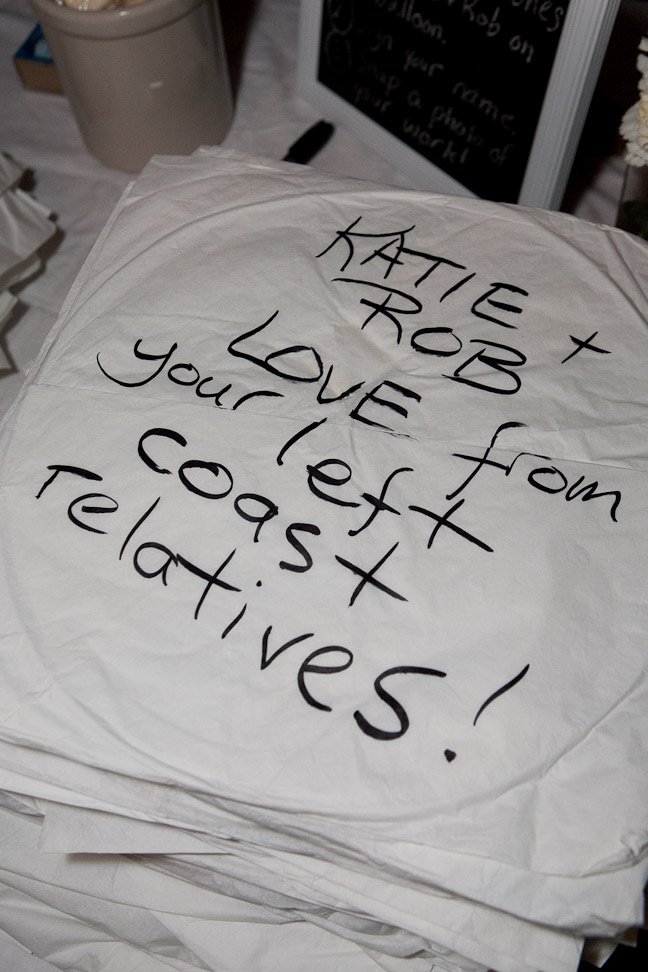 Rob on
balloon.
sign your name.
Snap a photo of
your work!
KATIE +
ROB
LOVE from
your left
coast
relatives!